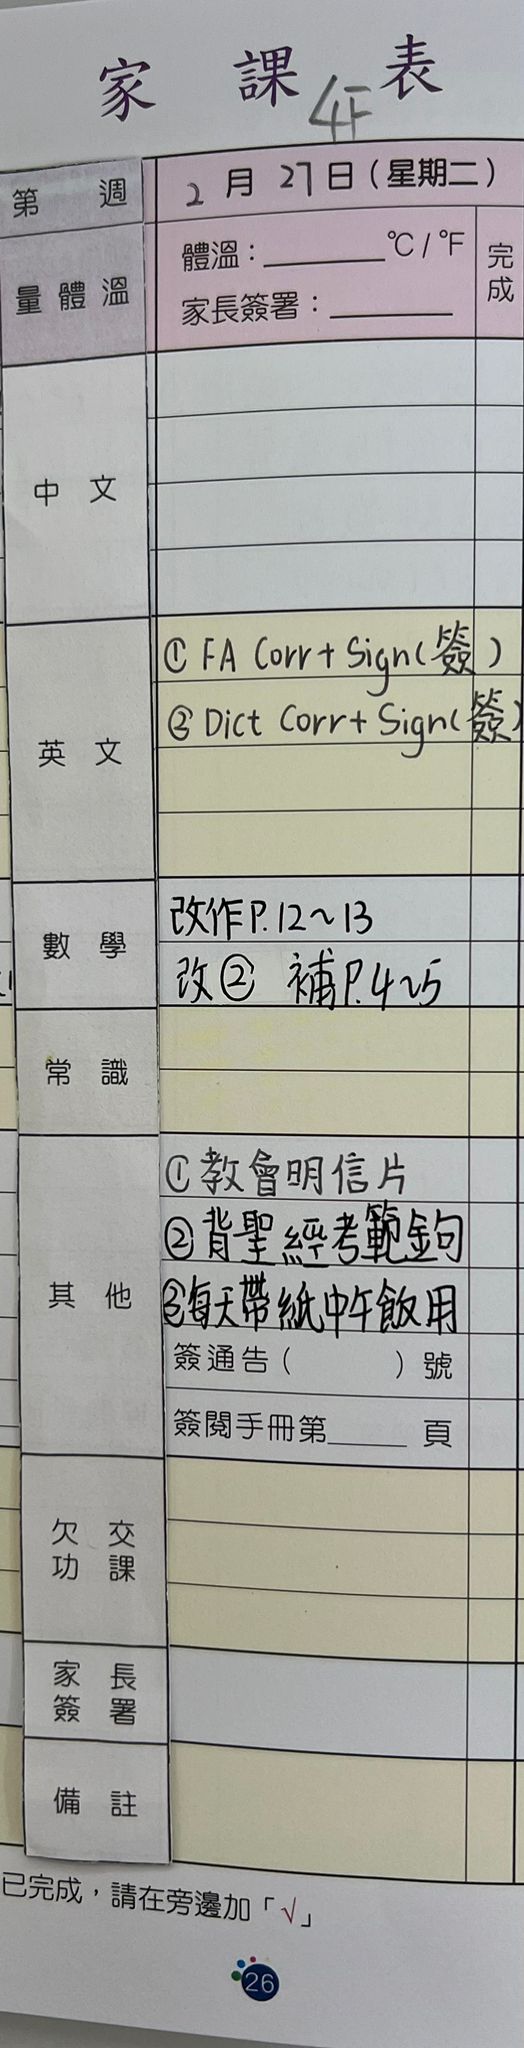 家課表
4F
第 週
2月27日(星期二)
量體溫
體溫：______°C/°F
家長簽署：______
完成
中文
英文
① FA Corr + Sign(簽)
② Dict Corr + Sign(簽)
數學
改作P.12~13
改② 補P.4~5
常識
其他
①教會明信片
②背聖經考範鈎
③每天帶紙中午飯用
簽通告( )號
簽閱手冊第______頁
欠交功課
家長簽署
備註
已完成，請在旁邊加「√」
26